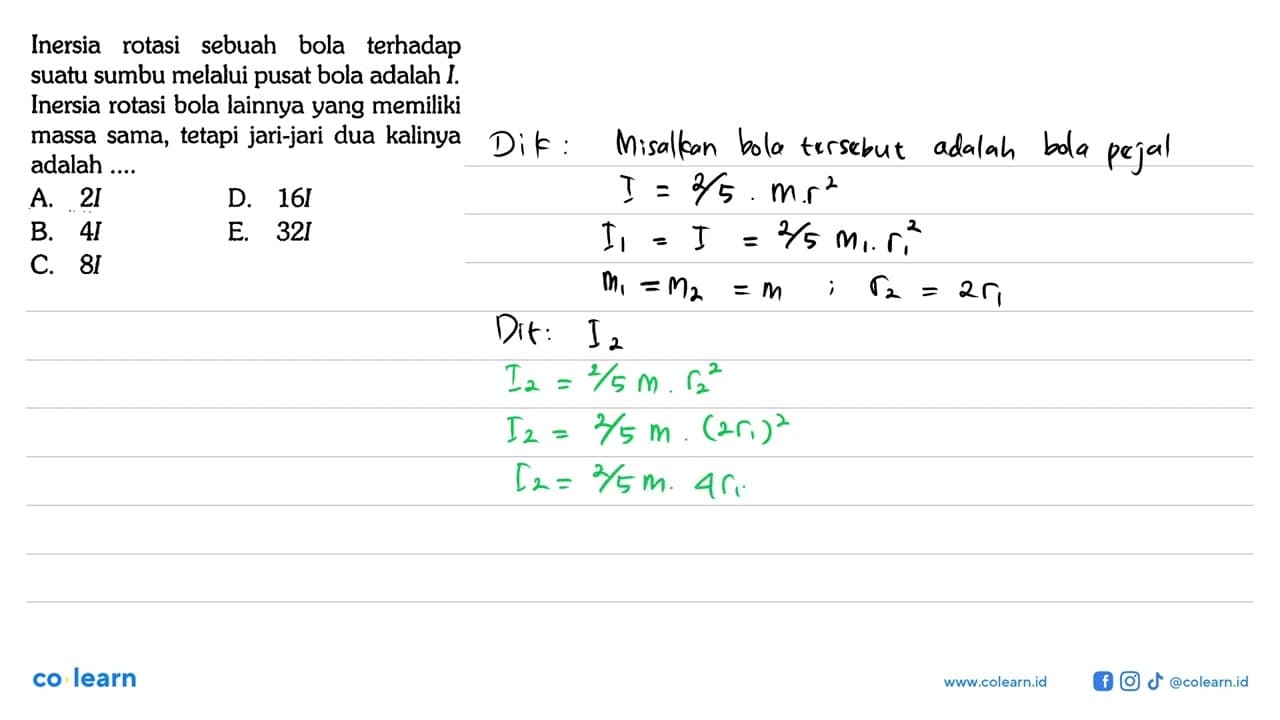 Inersia rotasi sebuah bola terhadap
suatu sumbu melalui pusat bola adalah I.
Inersia rotasi bola lainnya yang memiliki
massa sama, tetapi jari-jari dua kalinya
adalah ....
A. 2I D. 16I
B. 4I E. 32I
C. 8I
Dik : Misalkan bola tersebut adalah bola pejal
I = 2/5 . m.r²
I₁ = I = 2/5 m₁. r₁²
m₁ = m₂ = m ; r₂ = 2r₁
Dit: I₂
I₂ = 2/5 m . r₂²
I₂ = 2/5 m . (2r₁)²
I₂ = 2/5 m. 4r₁.
co learn
www.colearn.id @colearn.id